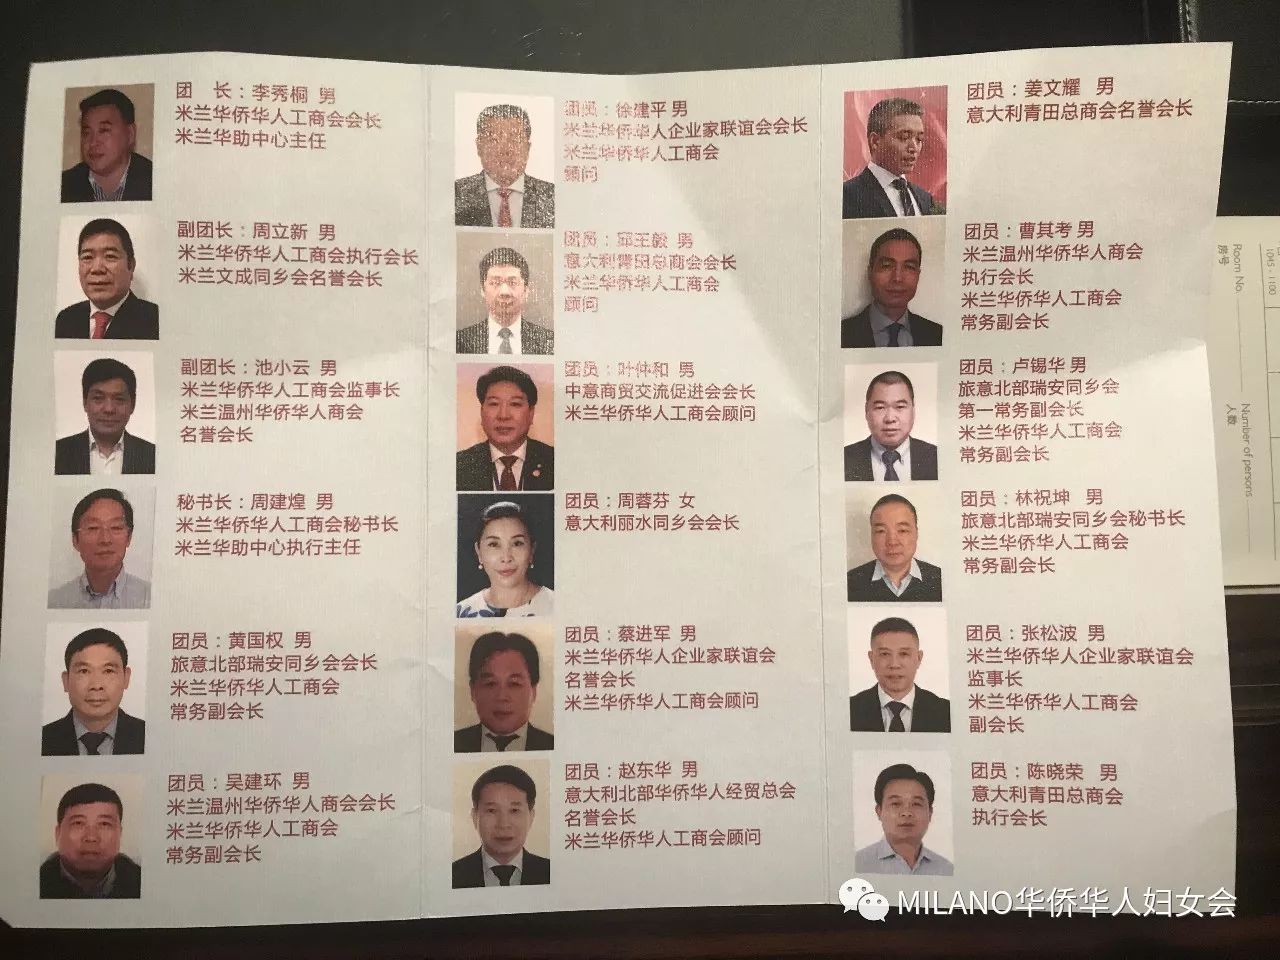 团　长：李秀桐 男
米兰华侨华人工商会会长
米兰华助中心主任
副团长：周立新 男
米兰华侨华人工商会执行会长
米兰文成同乡会名誉会长
副团长：池小云 男
米兰华侨华人工商会监事长
米兰温州华侨华人商会
名誉会长
秘书长：周建煌 男
米兰华侨华人工商会秘书长
米兰华助中心执行主任
团员：黄国权 男
旅意北部瑞安同乡会会长
米兰华侨华人工商会
常务副会长
团员：吴建环 男
米兰温州华侨华人商会会长
米兰华侨华人工商会
常务副会长
团员：徐建平 男
米兰华侨华人企业家联谊会会长
米兰华侨华人工商会
顾问
团员：邱王毅 男
意大利青田总商会会长
米兰华侨华人工商会
顾问
团员：叶仲和 男
中意商贸交流促进会会长
米兰华侨华人工商会顾问
团员：周蓉芬 女
意大利丽水同乡会会长
团员：蔡进军 男
米兰华侨华人企业家联谊会
名誉会长
米兰华侨华人工商会顾问
团员：赵东华 男
意大利北部华侨华人经贸总会
名誉会长
米兰华侨华人工商会顾问
团员：姜文耀 男
意大利青田总商会名誉会长
团员：曹其考 男
米兰温州华侨华人商会
执行会长
米兰华侨华人工商会
常务副会长
团员：卢锡华 男
旅意北部瑞安同乡会
第一常务副会长
米兰华侨华人工商会
常务副会长
团员：林祝坤 男
旅意北部瑞安同乡会秘书长
米兰华侨华人工商会
常务副会长
团员：张松波 男
米兰华侨华人企业家联谊会
监事长
米兰华侨华人工商会
副会长
团员：陈晓荣 男
意大利青田总商会
执行会长
1045 - 1100
Room No.
房号
Number of persons
人数
MILANO华侨华人妇女会